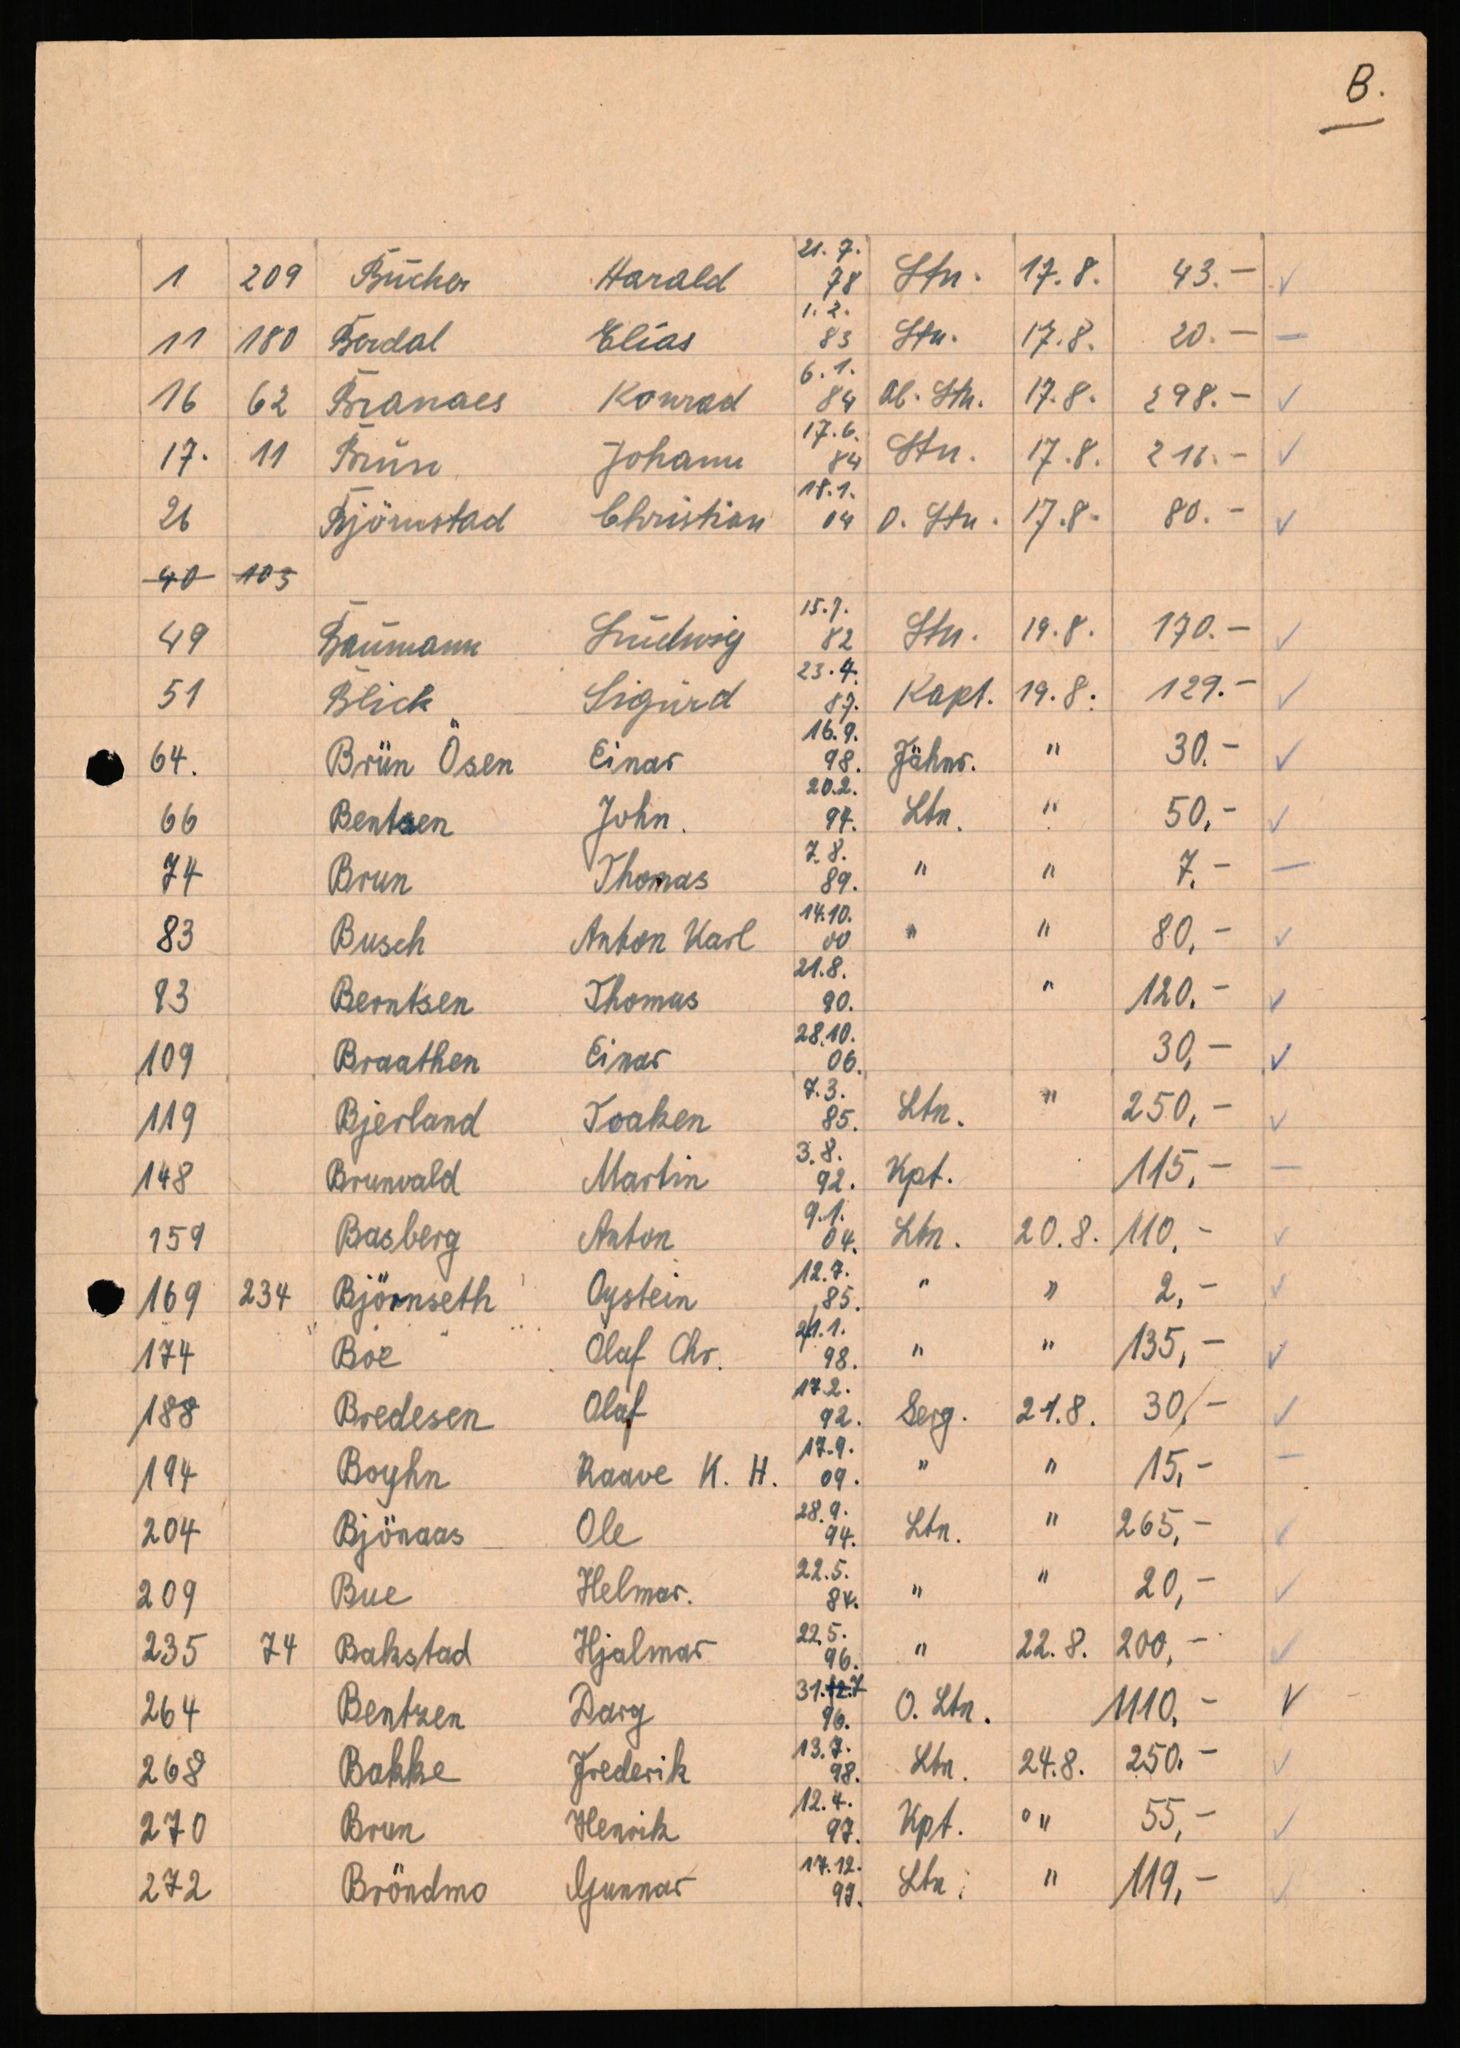 B.
1 209 Bücher Harald 21.7. 78 Ltn. 17.8. 43.- ✓
11 180 Berdal Elias 1.2. 83 Ltn. 17.8. 20.- —
16 62 Branaes Konrad 6.1. 84 Ob. Ltn. 17.8. 298.- ✓
17. 11 Brün Johann 17.6. 84 Ltn. 17.8. 216.- ✓
26 Björnstad Christian 18.1. 04 O. Ltn. 17.8. 80.- ✓
40 103
49 Baumann Ludwig 15.7. 82 Ltn. 19.8. 170.- ✓
51 Blick Sigurd 23.4. 87. Kapt. 19.8. 129.- ✓
64. Brün Ösen Einar 16.9. 98. Fähnr. " 30.- ✓
66 Bentsen John. 20.2. 94. Ltn. " 50,- ✓
74 Brun Thomas 7.8. 89. " " 7.- —
83 Busch Anton Karl 14.10. 00 " " 80,- ✓
83 Berntsen Thomas 21.8. 90. " 120.- ✓
109 Braathen Einar 28.10. 06. 30,- ✓
119 Bjerland Toaken 7.3. 85. Ltn. " 250,- ✓
148 Brunvald Martin 3.8. 92. Kpt. 115,- —
159 Basberg Anton 9.1. 04. Ltn. 20.8. 110,- ✓
169 234 Björnseth Oystein 12.7. 85. " " 2,- ✓
174 Böe Olaf Chr. 21.1. 98. " " 135,- ✓
188 Bredesen Olaf 17.2. 92. Serg. 21.8. 30,- ✓
194 Boyhn Raave K. H. 17.9. 09. " " 15,- —
204 Bjönaas Ole 28.9. 94. Ltn. " 265,- ✓
209 Bue Helmar. 22.5. 84. " " 20,- ✓
235 74 Bakstad Hjalmar 22.5. 96. " 22.8. 200,- ✓
264 Bentzen Darg 31.12.7 96. O. Ltn. 1110,- ✓ -
268 Bakke Frederik 13.7. 98. Ltn. 24.8. 250.- ✓
270 Brun Henrik 12.4. 97. Kpt. " 55,- ✓
272 Bröndmo Gunnar 17.12. 97. Ltn. " 119,- ✓